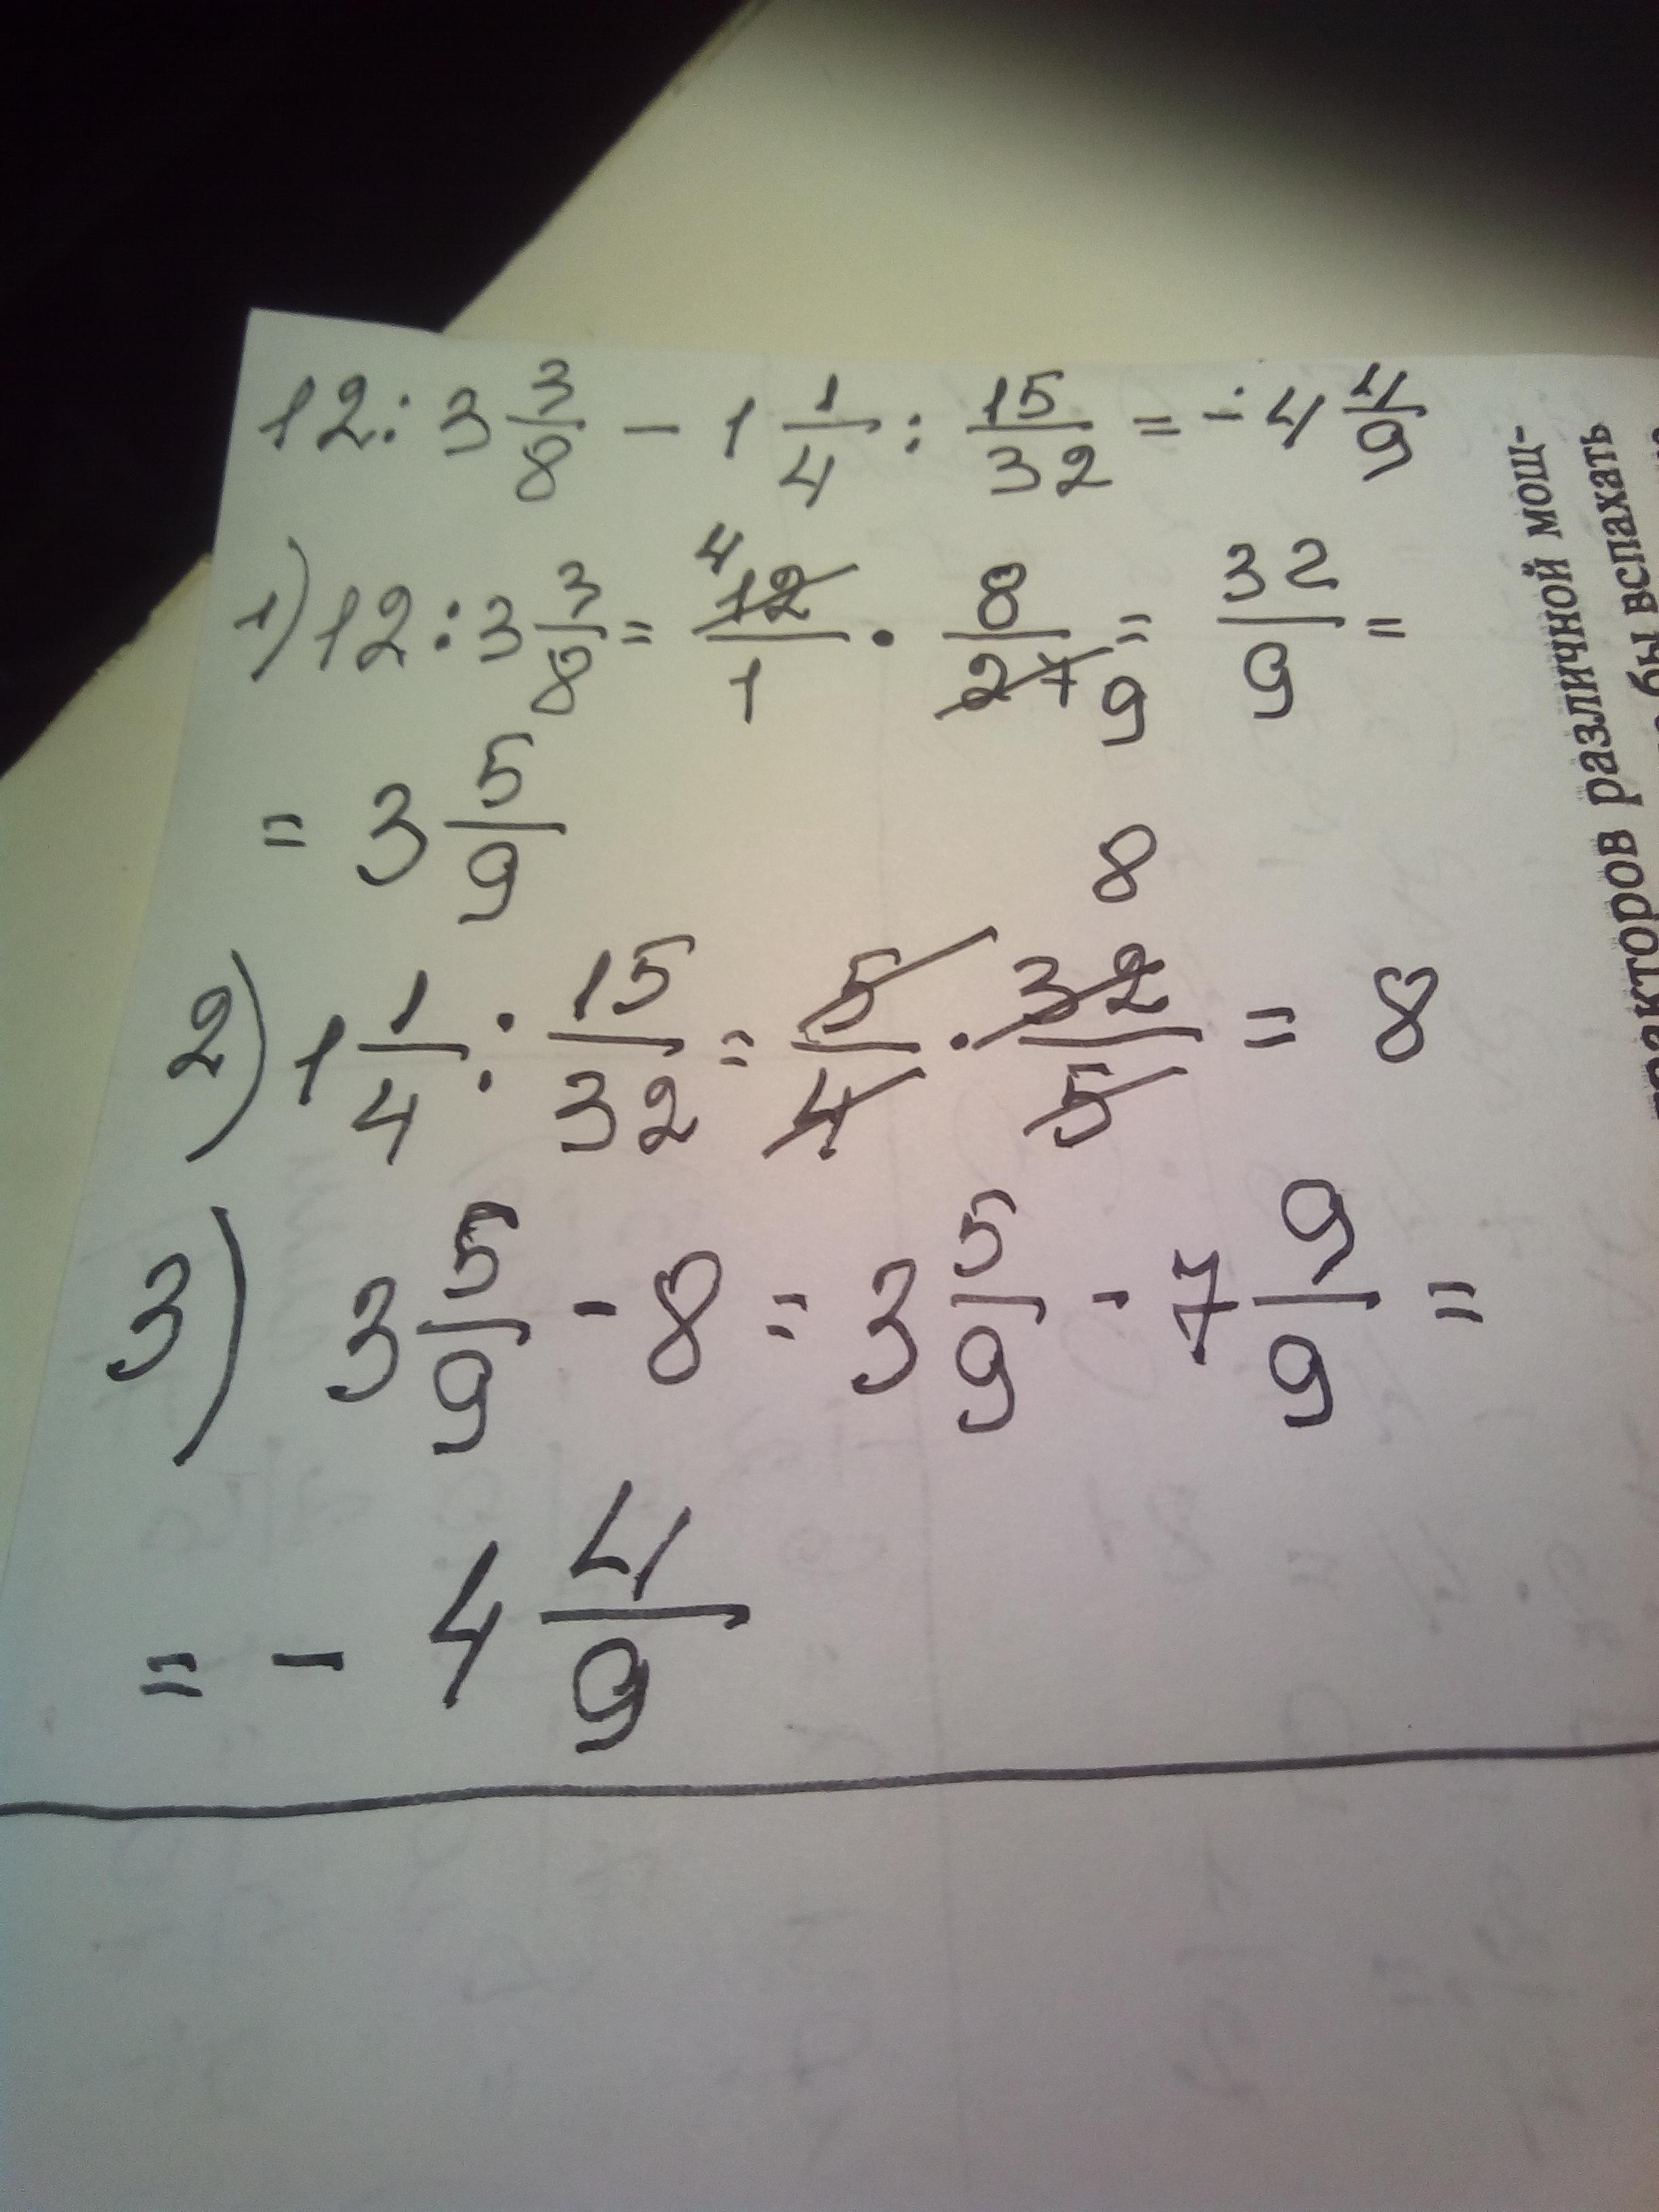 12 : 3 3/8 - 1 1/4 : 15/32 = - 4 4/9
1) 12 : 3 3/8 = 4 12/1 · 8/27 9 = 32/9 =
= 3 5/9
8
2) 1 1/4 : 15/32 = 5/4 · 32/5 = 8
3) 3 5/9 - 8 = 3 5/9 - 7 9/9 =
= - 4 4/9
акторов различной мощ-
бы вспахать